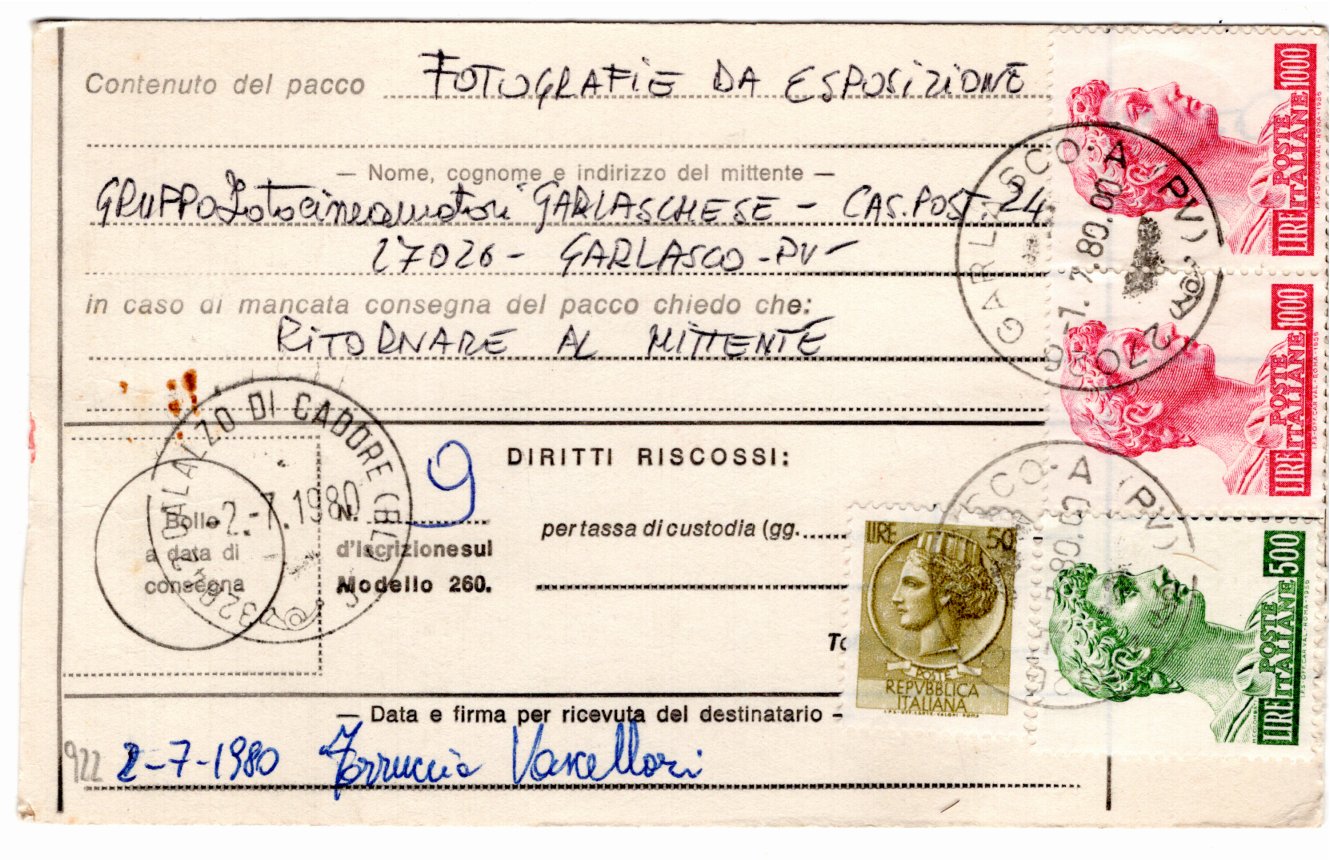 Contenuto del pacco FOTOGRAFIE DA ESPOSIZIONE
— Nome, cognome e indirizzo del mittente —
GRUPPO Fotocineamatori GARLASCHESE - CAS. POST. 24
27026 - GARLASCO - PV -
in caso di mancata consegna del pacco chiedo che:
RITORNARE AL MITTENTE
DIRITTI RISCOSSI:
9
Bollo
a data di
consegna
N.
d'iscrizione sul
Modello 260.
per tassa di custodia (gg.
32042 CALALZO DI CADORE (BL)
2.-7.1980
GARLASCO - A (PV)
27026
-1.7.80.00
SCO - A (PV)
LIRE 1000
POSTE ITALIANE
LIRE 1000
POSTE ITALIANE
LIRE 500
POSTE ITALIANE
LIRE 50
POSTE
REPVBBLICA
ITALIANA
— Data e firma per ricevuta del destinatario —
922 2-7-1980